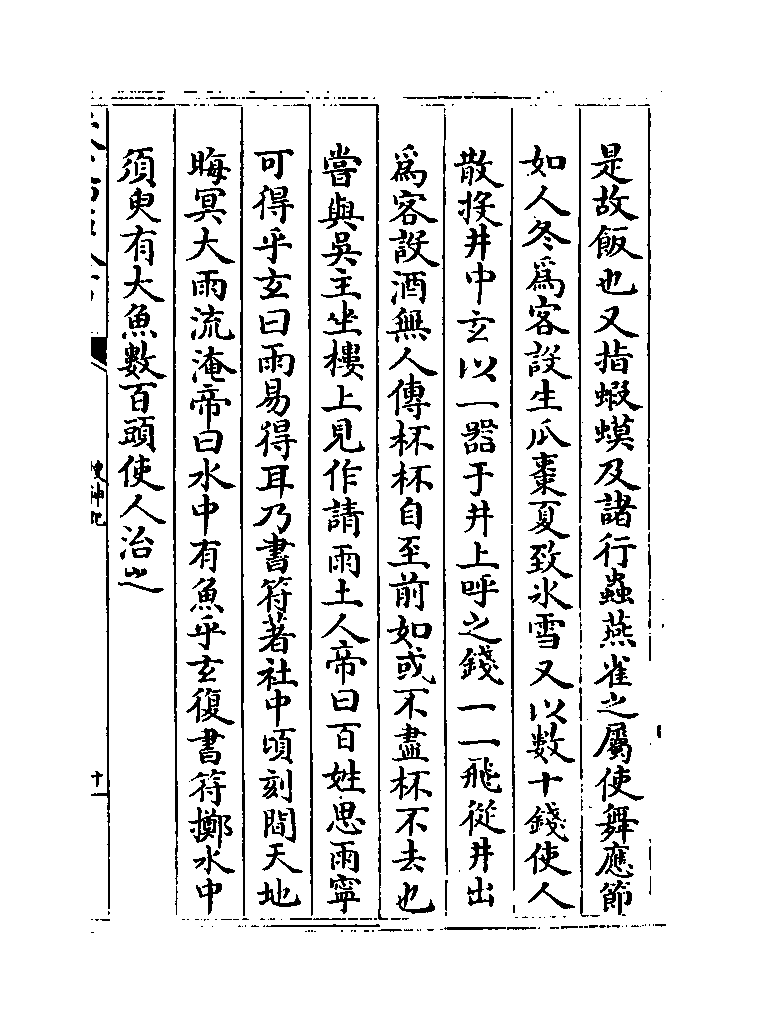 是故飯也又指蝦蟆及諸行蟲燕雀之屬使舞應節
如人冬爲客設生瓜棗夏致氷雪又以數十錢使人
散投井中玄以一器于井上呼之錢一一飛從井出
爲客設酒無人傳杯杯自至前如或不盡杯不去也
嘗與吳主坐樓上見作請雨土人帝曰百姓思雨寧
可得乎玄曰雨易得耳乃書符著社中頃刻間天地
晦冥大雨流淹帝曰水中有魚乎玄復書符擲水中
須臾有大魚數百頭使人治之
搜神記
十一